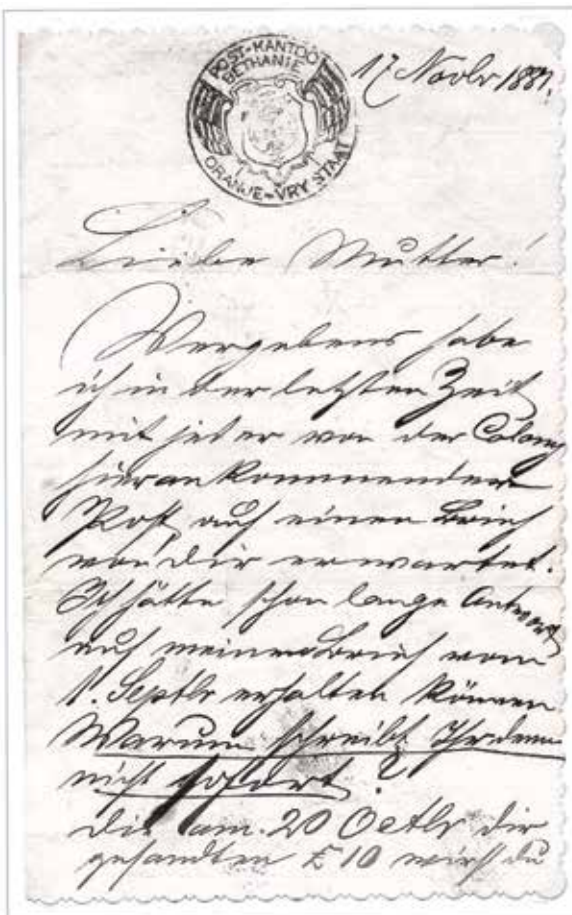 POST-KANTOO
BETHANIE
ORANJE-VRY STAAT
17 Novbr 1887.
Liebe Mutter!
Vergebens habe
ich in der letzten Zeit
mit jeder von der Colony
hier ankommenden
Post, auf einen Brief
von dir erwartet.
Ich hätte schon lange Antwort
auf meinen Brief vom
1. Septbr erhalten können
Warum schreibt Ihr denn
nicht sofort?
die am 20 Octbr dir
gesandten £ 10 wirst du